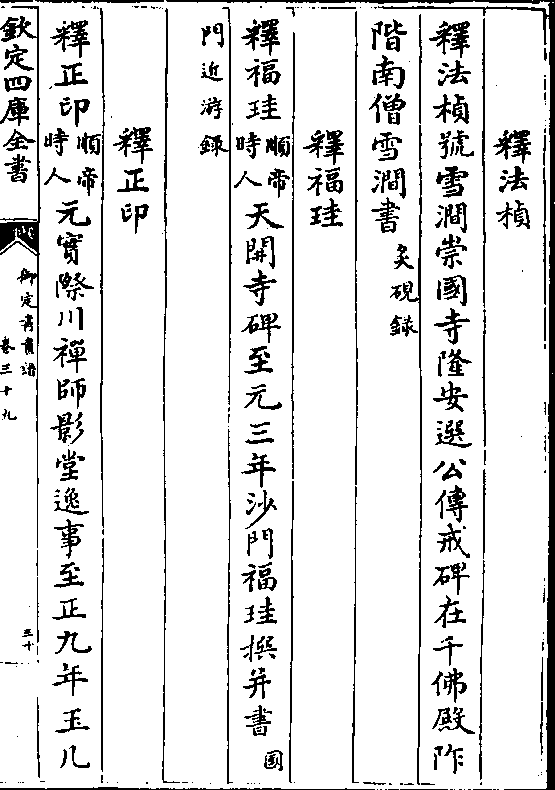 釋法楨
釋法楨號雪澗崇國寺隆安選公傳戒碑在千佛殿阼
階南僧雪澗書 炙硯錄
釋福珪
釋福珪 順帝時人 天開寺碑至元三年沙門福珪撰并書 國
門近游錄
釋正印
釋正印 順帝時人 元實際川禪師影堂逸事至正九年玉几
欽定四庫全書
御定書畫譜
卷三十九
三十